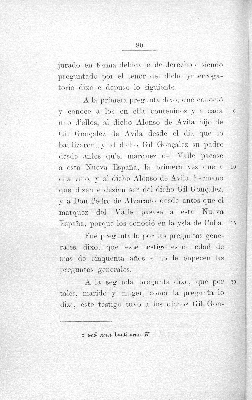 80
jurado en forma debida e de derecho e siendo
preguntado por el tenor del dicho ynterroga-
torio dixo e depuso lo siguiente.
A la primera pregunta dixo, que conoció
y conoce a los en ella contenidos y a cada
uno d'ellos, al dicho Alonso de Avila hijo de
Gil Gonçalez de Avila desde el día que lo
batizaron, y al dicho Gil Gonçalez su padre
desde antes qu'el marques del Valle pasase
a esta Nueva España, la primera vez que a
ella vino, y al dicho Alonso de Avila hermano
que dizen e dizian ser del dicho Gil Gonçalez,
y a Don Pedro de Alvarado desde antes que el
marques del Valle pasase a esta Nueva
España, porque los conoció en la ysla de Cuba.
Fue preguntado por las preguntas gene-
rales, dixo, que este testigo es de hedad de
mas de cinquenta años e no le enpecen las
preguntas generales.
A la segunda pregunta dixo, que por
tales, marido y muger, como la pregunta lo
dize, este testigo tuvo a los dichos Gil Gonç-